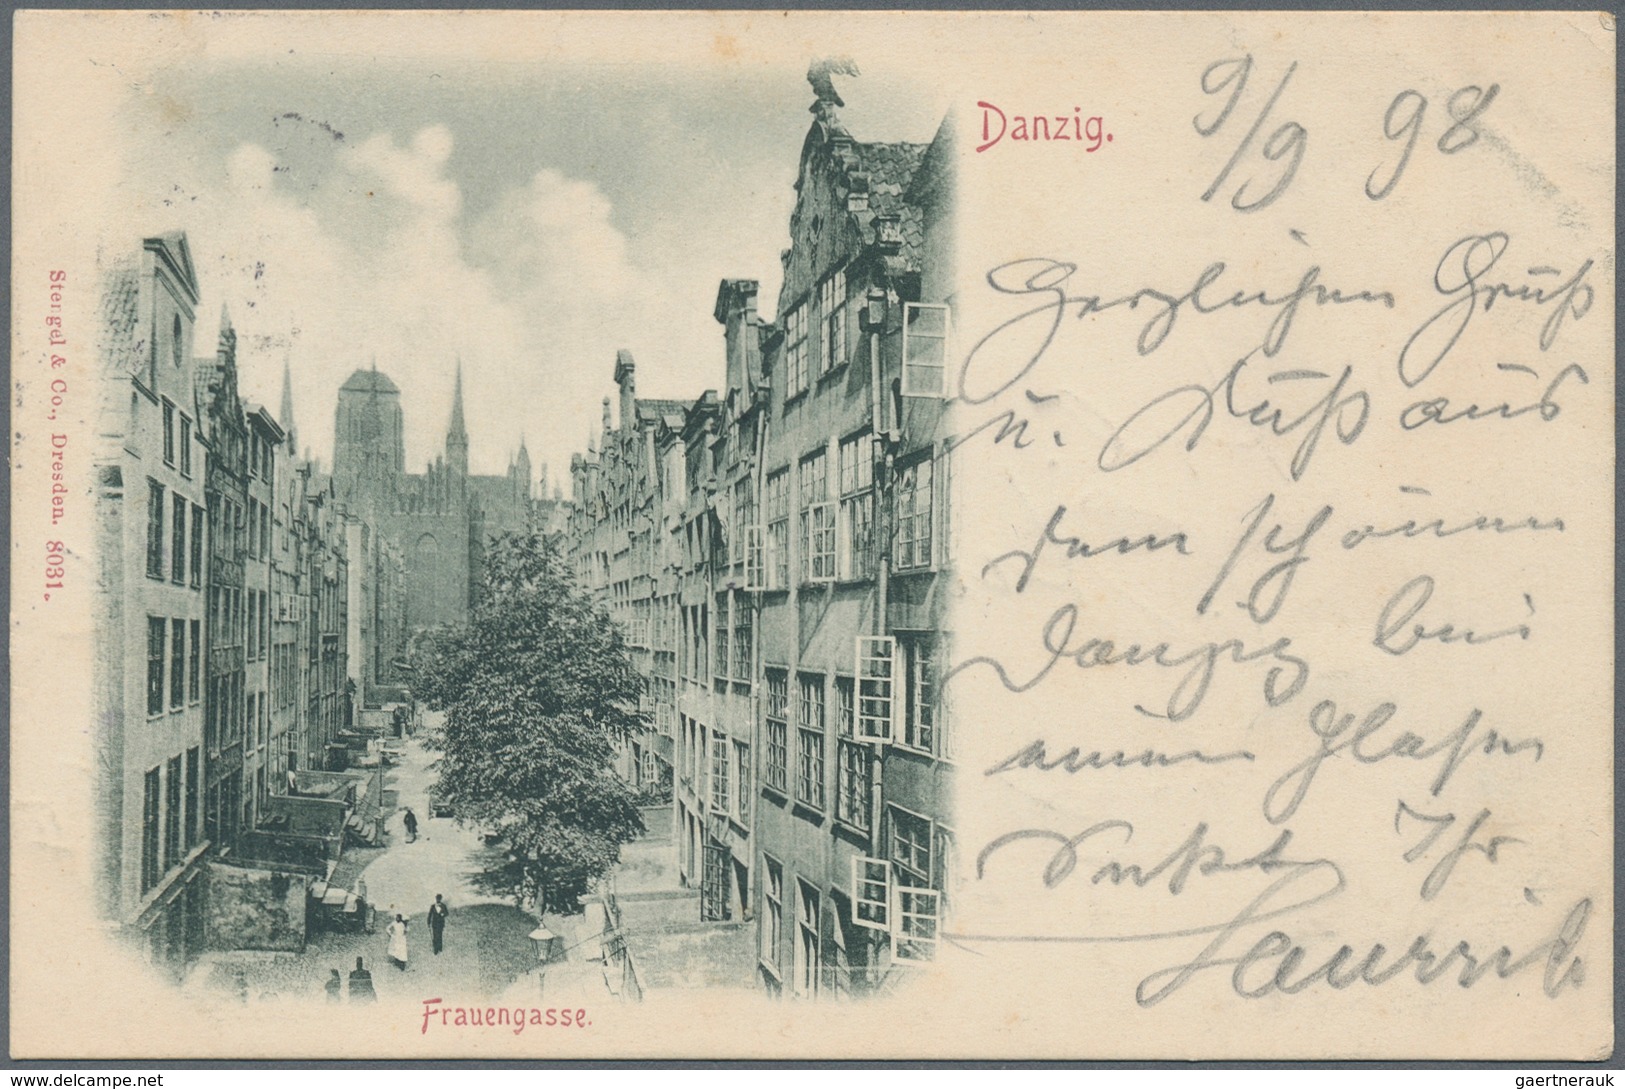 Danzig.
9/9 98
Herzlichen Gruß
u. Kuß aus
dem schönen
Danzig bei
einem Glase
Sekt Ihr
Stengel & Co., Dresden. 8031.
Frauengasse.
delcampe.net
gaertnerauk